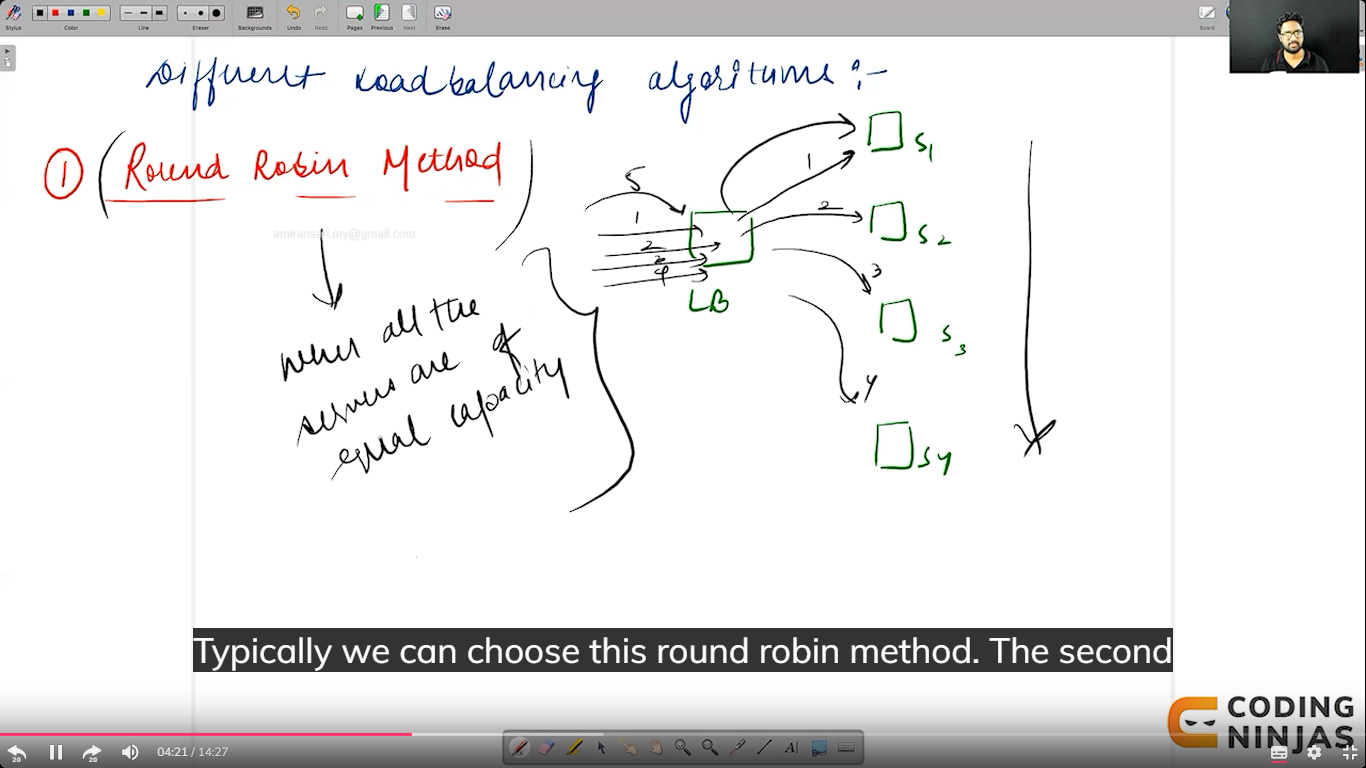 Stylus Color Line Eraser Backgrounds Undo Redo Pages Previous Next Erase Board
Different Loadbalancing algorithms :-
① (Round Robin Method)
amiransari.my@gmail.com
when all the
servers are of
equal capacity
5
1
2
3
4
LB
1
2
3
4
S1
S2
S3
S4
Typically we can choose this round robin method. The second
CODING
NINJAS
20 20 04:21 / 14:27